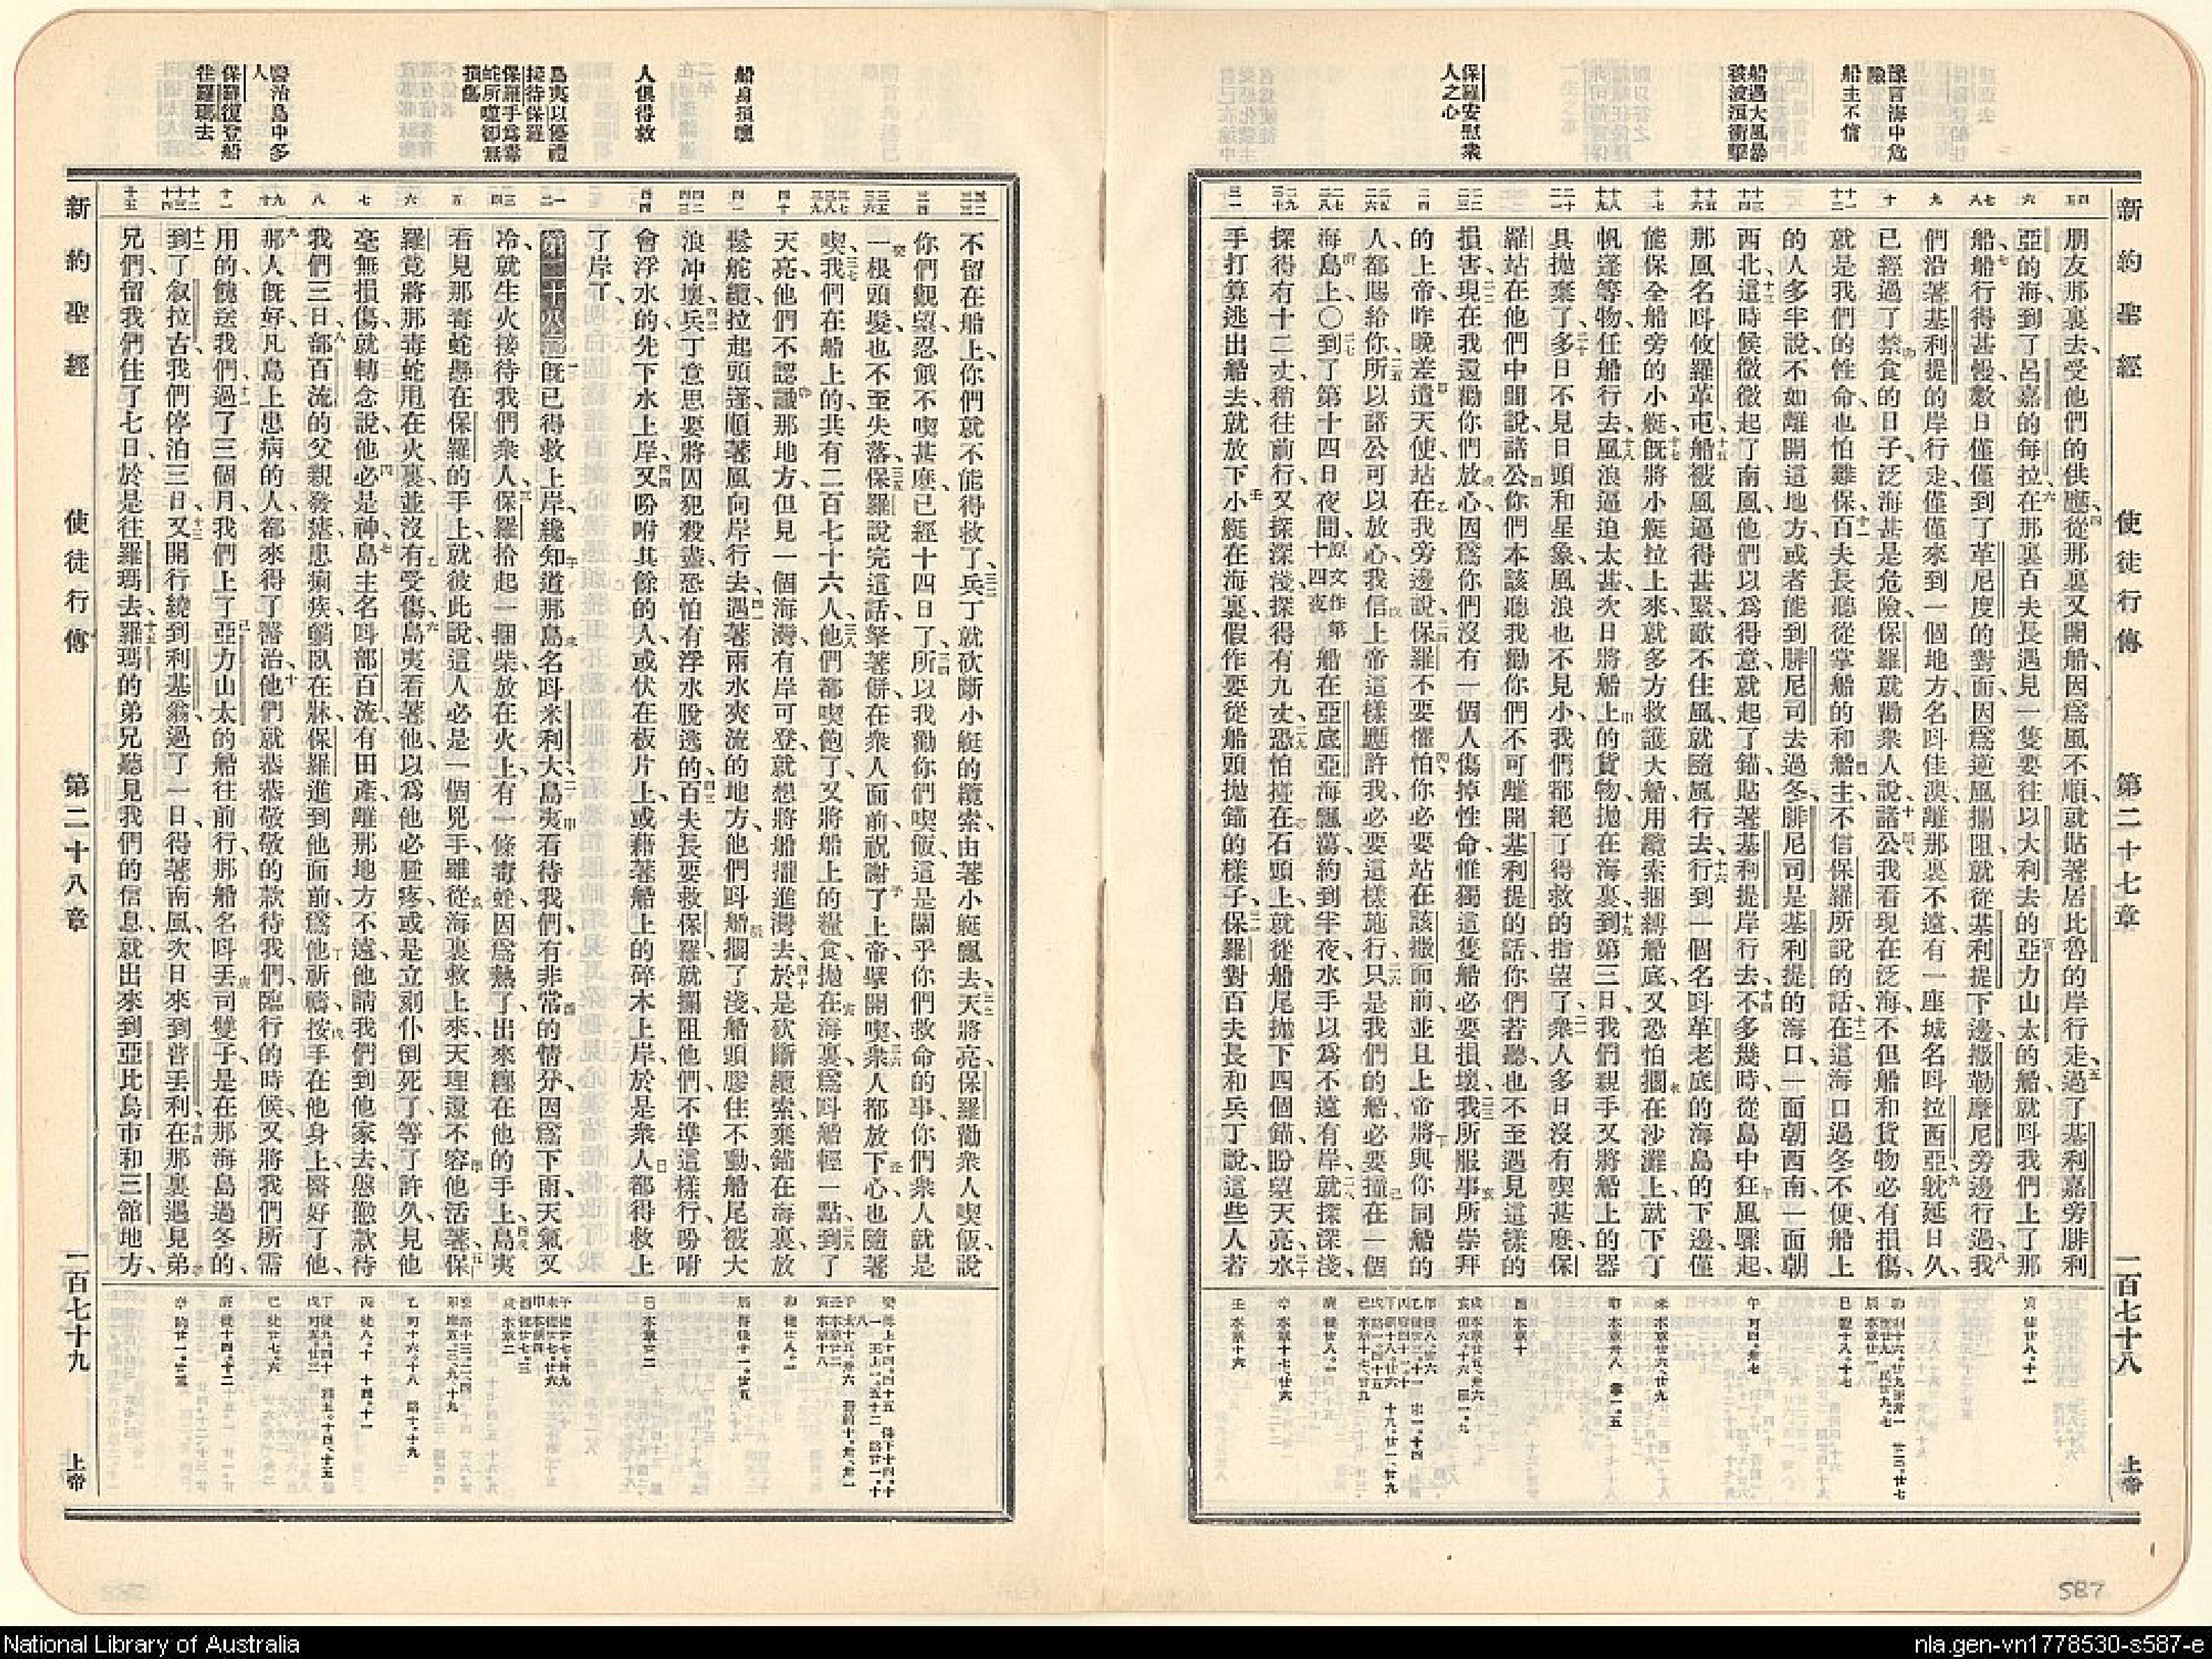 新約聖經 使徒行傳 第二十七章 一百七十八 上帝
豫言海中危險
船主不信
船遇大風暴
被波浪衝擊
保羅安慰衆
人之心
朋友那裏去、受他們的供應、從那裏又開船、因爲風不順、就貼著居比魯的岸行走、過了基利嘉旁腓利
亞的海、到了呂嘉的每拉、在那裏百夫長遇見一隻要往以大利去的亞力山太的船、就呌我們上了那
船、船行得甚慢、數日僅僅到了革尼度的對面、因爲逆風攔阻、就從基利提下邊、撒勒摩尼旁邊行過、我
們沿著基利提的岸行走、僅僅來到一個地方、名呌佳澳、離那裏不遠、有一座城名呌拉西亞、躭延日久、
已經過了禁食的日子、泛海甚是危險、保羅就勸衆人說、諸公我看現在泛海、不但船和貨物必有損傷、
就是我們的性命也怕難保、百夫長聽從掌船的和船主、不信保羅所說的話、在這海口過冬不便、船上
的人多半說、不如離開這地方、或者能到腓尼司去過冬、腓尼司是基利提的海口、一面朝西南、一面朝
西北、這時候微微起了南風、他們以爲得意、就起了錨、貼著基利提岸行去、不多幾時、從島中狂風驟起、
那風名呌攸羅革屯、船被風逼得甚緊、敵不住風、就隨風行去、行到一個名呌革老底的海島的下邊、僅
能保全船旁的小艇、旣將小艇拉上來、就多方救護大船、用纜索捆縛船底、又恐怕擱在沙灘上、就下了
帆篷等物、任船行去、風浪逼迫太甚、次日將船上的貨物拋在海裏、到第三日、我們親手又將船上的器
具拋棄了、多日不見日頭和星象、風浪也不見小、我們都絕了得救的指望了、衆人多日沒有喫甚麽、保
羅站在他們中間說、諸公、你們本該聽我勸你們不可離開基利提的話、你們若聽、也不至遇見這樣的
損害、現在我還勸你們放心、因爲你們沒有一個人傷掉性命、惟獨這隻船必要損壞、我所服事所崇拜
的上帝、昨晚差遣天使、站在我旁邊說、保羅不要懼怕、你必要站在該撒面前、並且上帝將與你同船的
人、都賜給你、所以諸公可以放心、我信上帝這樣應許我、必要這樣施行、只是我們的船、必要撞在一個
海島上、〇到了第十四日夜間、原文作第十四夜 船在亞底亞海飄蕩、約到半夜、水手以爲不遠有岸、就探深淺、
探得有十二丈、稍往前行、又探深淺、探得有九丈、恐怕撞在石頭上、就從船尾拋下四個錨、盼望天亮、水
手打算逃出船去、就放下小艇在海裏、假作要從船頭拋錨的樣子、保羅對百夫長和兵丁說、這些人若
船身損壞
人俱得救
島夷以優禮
接待保羅
保羅手爲毒
蛇所噬卻無
損傷
醫治島中多
人
保羅復登船
往羅瑪去
不留在船上、你們就不能得救了、兵丁就砍斷小艇的纜索、由著小艇飄去、天將亮、保羅勸衆人喫飯、說
你們觀望忍餓不喫甚麽、已經十四日了、所以我勸你們喫飯、這是關乎你們救命的事、你們衆人就是
一根頭髮也不至失落、保羅說完這話、拏著餅、在衆人面前、祝謝了上帝、擘開喫、衆人都放下心、也隨著
喫、我們在船上的、共有二百七十六人、他們都喫飽了、又將船上的糧食、拋在海裏、爲呌船輕一點、到了
天亮、他們不認識那地方、但見一個海灣、有岸可登、就想將船攏進灣去、於是砍斷纜索、棄錨在海裏、放
鬆舵纜、拉起頭篷、順著風向岸行去、遇著兩水夾流的地方、他們呌船擱了淺、船頭膠住不動、船尾被大
浪冲壞、兵丁意思要將囚犯殺盡、恐怕有浮水脫逃的、百夫長要救保羅、就攔阻他們、不準這樣行、吩咐
會浮水的、先下水上岸、又吩咐其餘的人、或伏在板片上、或藉著船上的碎木上岸、於是衆人都得救上
了岸了、
第二十八章 旣已得救上岸、纔知道那島名呌米利大、島夷看待我們有非常的情分、因爲下雨、天氣又
冷、就生火接待我們衆人、保羅拾起一捆柴、放在火上、有一條毒蛇、因爲熱了出來、纏在他的手上、島夷
看見那毒蛇懸在保羅的手上、就彼此說、這人必是一個兇手、雖從海裏救上來、天理還不容他活著、保
羅竟將那毒蛇甩在火裏、並沒有受傷、島夷看著他、以爲他必腫疼、或是立刻仆倒死了、等了許久、見他
毫無損傷、就轉念說、他必是神、島主名呌部百流、有田產離那地方不遠、他請我們到他家去、慇懃款待
我們三日、部百流的父親發瘧患痢疾、躺臥在牀、保羅進到他面前、爲他祈禱、按手在他身上、醫好了他、
那人旣好、凡島上患病的人、都來得了醫治、他們就恭恭敬敬的款待我們、臨行的時候、又將我們所需
用的、餽送我們、過了三個月、我們上了亞力山太的船往前行、那船名呌丟司雙子、是在那海島過冬的、
到了叙拉古、我們停泊三日、又開行繞到利基翁、過了一日、得著南風、次日來到普丟利、在那裏遇見弟
兄們、留我們住了七日、於是往羅瑪去、羅瑪的弟兄聽見我們的信息、就出來到亞比烏市和三舘地方、
新約聖經 使徒行傳 第二十八章 一百七十九 上帝
587
National Library of Australia
nla.gen-vn1778530-s587-e